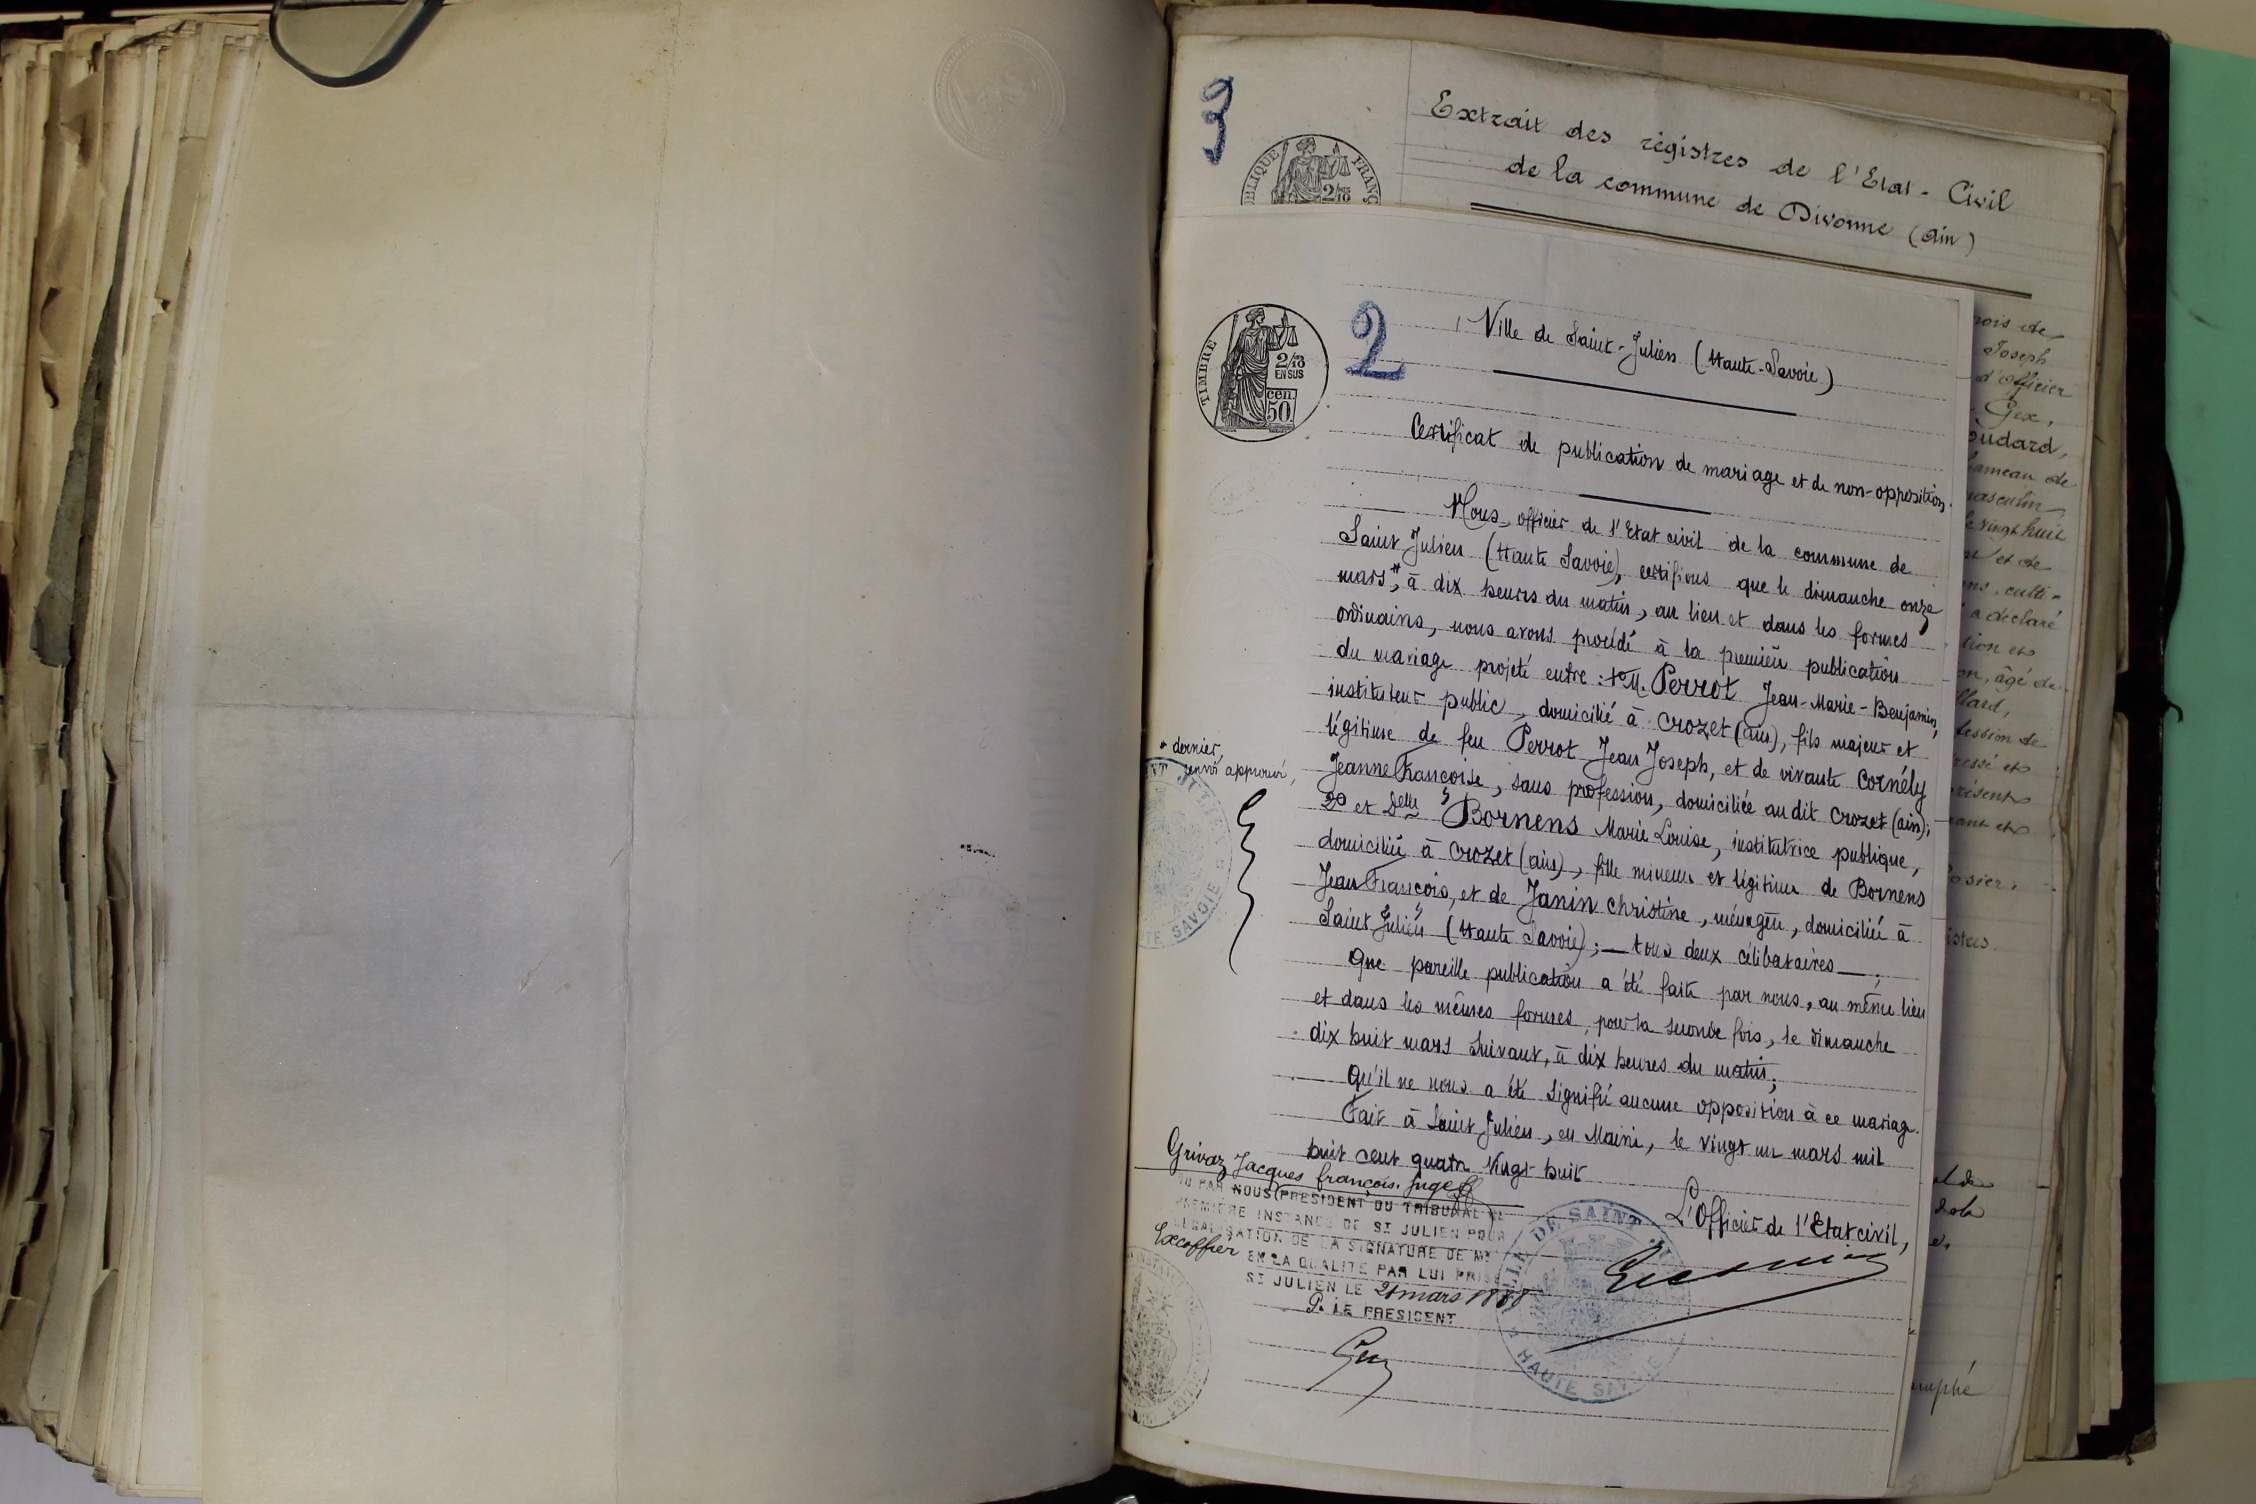 3
BLIQUE FRANÇ
2/10
Extrait des régistres de l'Etat-Civil
de la commune de Divonne (Ain)
TIMBRE
2/10
EN SUS
cen.
50
2
Ville de Saint-Julien (Haute-Savoie)
Certificat de publication de mariage et de non-opposition.
Nous, officier de l'Etat civil de la commune de
Saint Julien (Haute Savoie), certifions que le dimanche onze
mars*, à dix heures du matin, au lieu et dans les formes
ordinaires, nous avons procédé à la première publication
du mariage projeté entre : 1o M. Perrot Jean-Marie-Benjamin,
instituteur public, domicilié à Crozet (ain), fils majeur et
légitime de feu Perrot Jean Joseph, et de vivante Cornély
Jeanne Françoise, sans profession, domiciliée au dit Crozet (ain);
2o et Delle Bornens Marie Louise, institutrice publique,
domiciliée à Crozet (ain), fille mineure et légitime de Bornens
Jean François, et de Janin Christine, ménagère, domiciliée à
Saint Julien (Haute Savoie); — tous deux célibataires —;
Que pareille publication a été faite par nous, au même lieu
et dans les mêmes formes, pour la seconde fois, le dimanche
dix huit mars suivant, à dix heures du matin;
Qu'il ne nous a été signifié aucune opposition à ce mariage.
Fait à Saint Julien, en Mairie, le vingt un mars mil
huit cent quatre vingt-huit
* dernier,
renvoi approuvé,
L'Officier de l'Etat civil,
Grivaz Jacques françois. Juge
VU PAR NOUS PRESIDENT DU TRIBUNAL DE
PREMIERE INSTANCE DE ST JULIEN POUR
LEGALISATION DE LA SIGNATURE DE MR
Excoffier
EN LA QUALITE PAR LUI PRISE
ST JULIEN LE 21 mars 1888
P. LE PRESIDENT
VILLE DE SAINT
HAUTE SAVOIE
NT JULIEN
TE SAVOIE
mois de
Joseph
d'officier
Gex,
oudard,
hameau de
masculin
le vingt huit
et de
ns, culti-
a déclaré
tion et
on, âgé de
llard,
fession de
ressé et
présent
istres